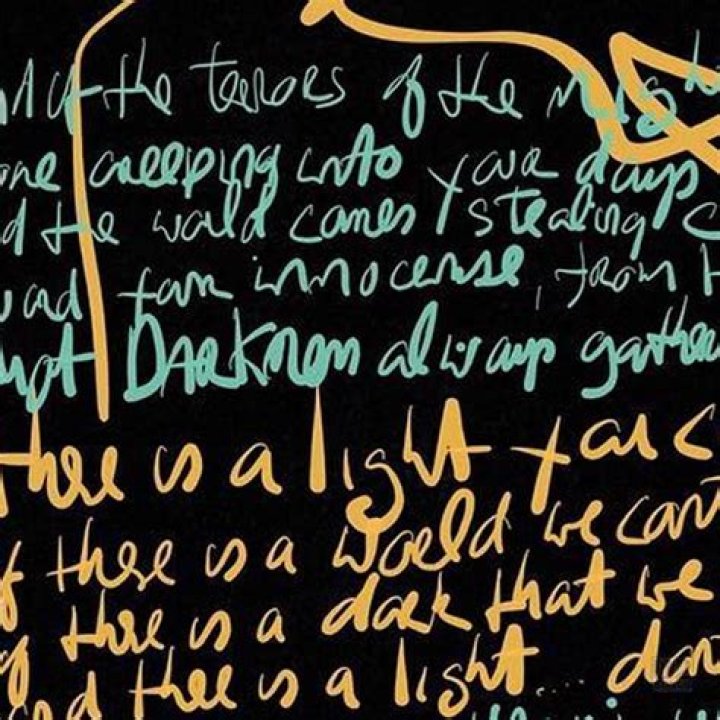 the terrors of the night
creeping into your days
the world comes stealing
for innocense, from
Darkness always gather
there is a light you
if there is a world we cant
if there is a dark that we
and there is a light... don